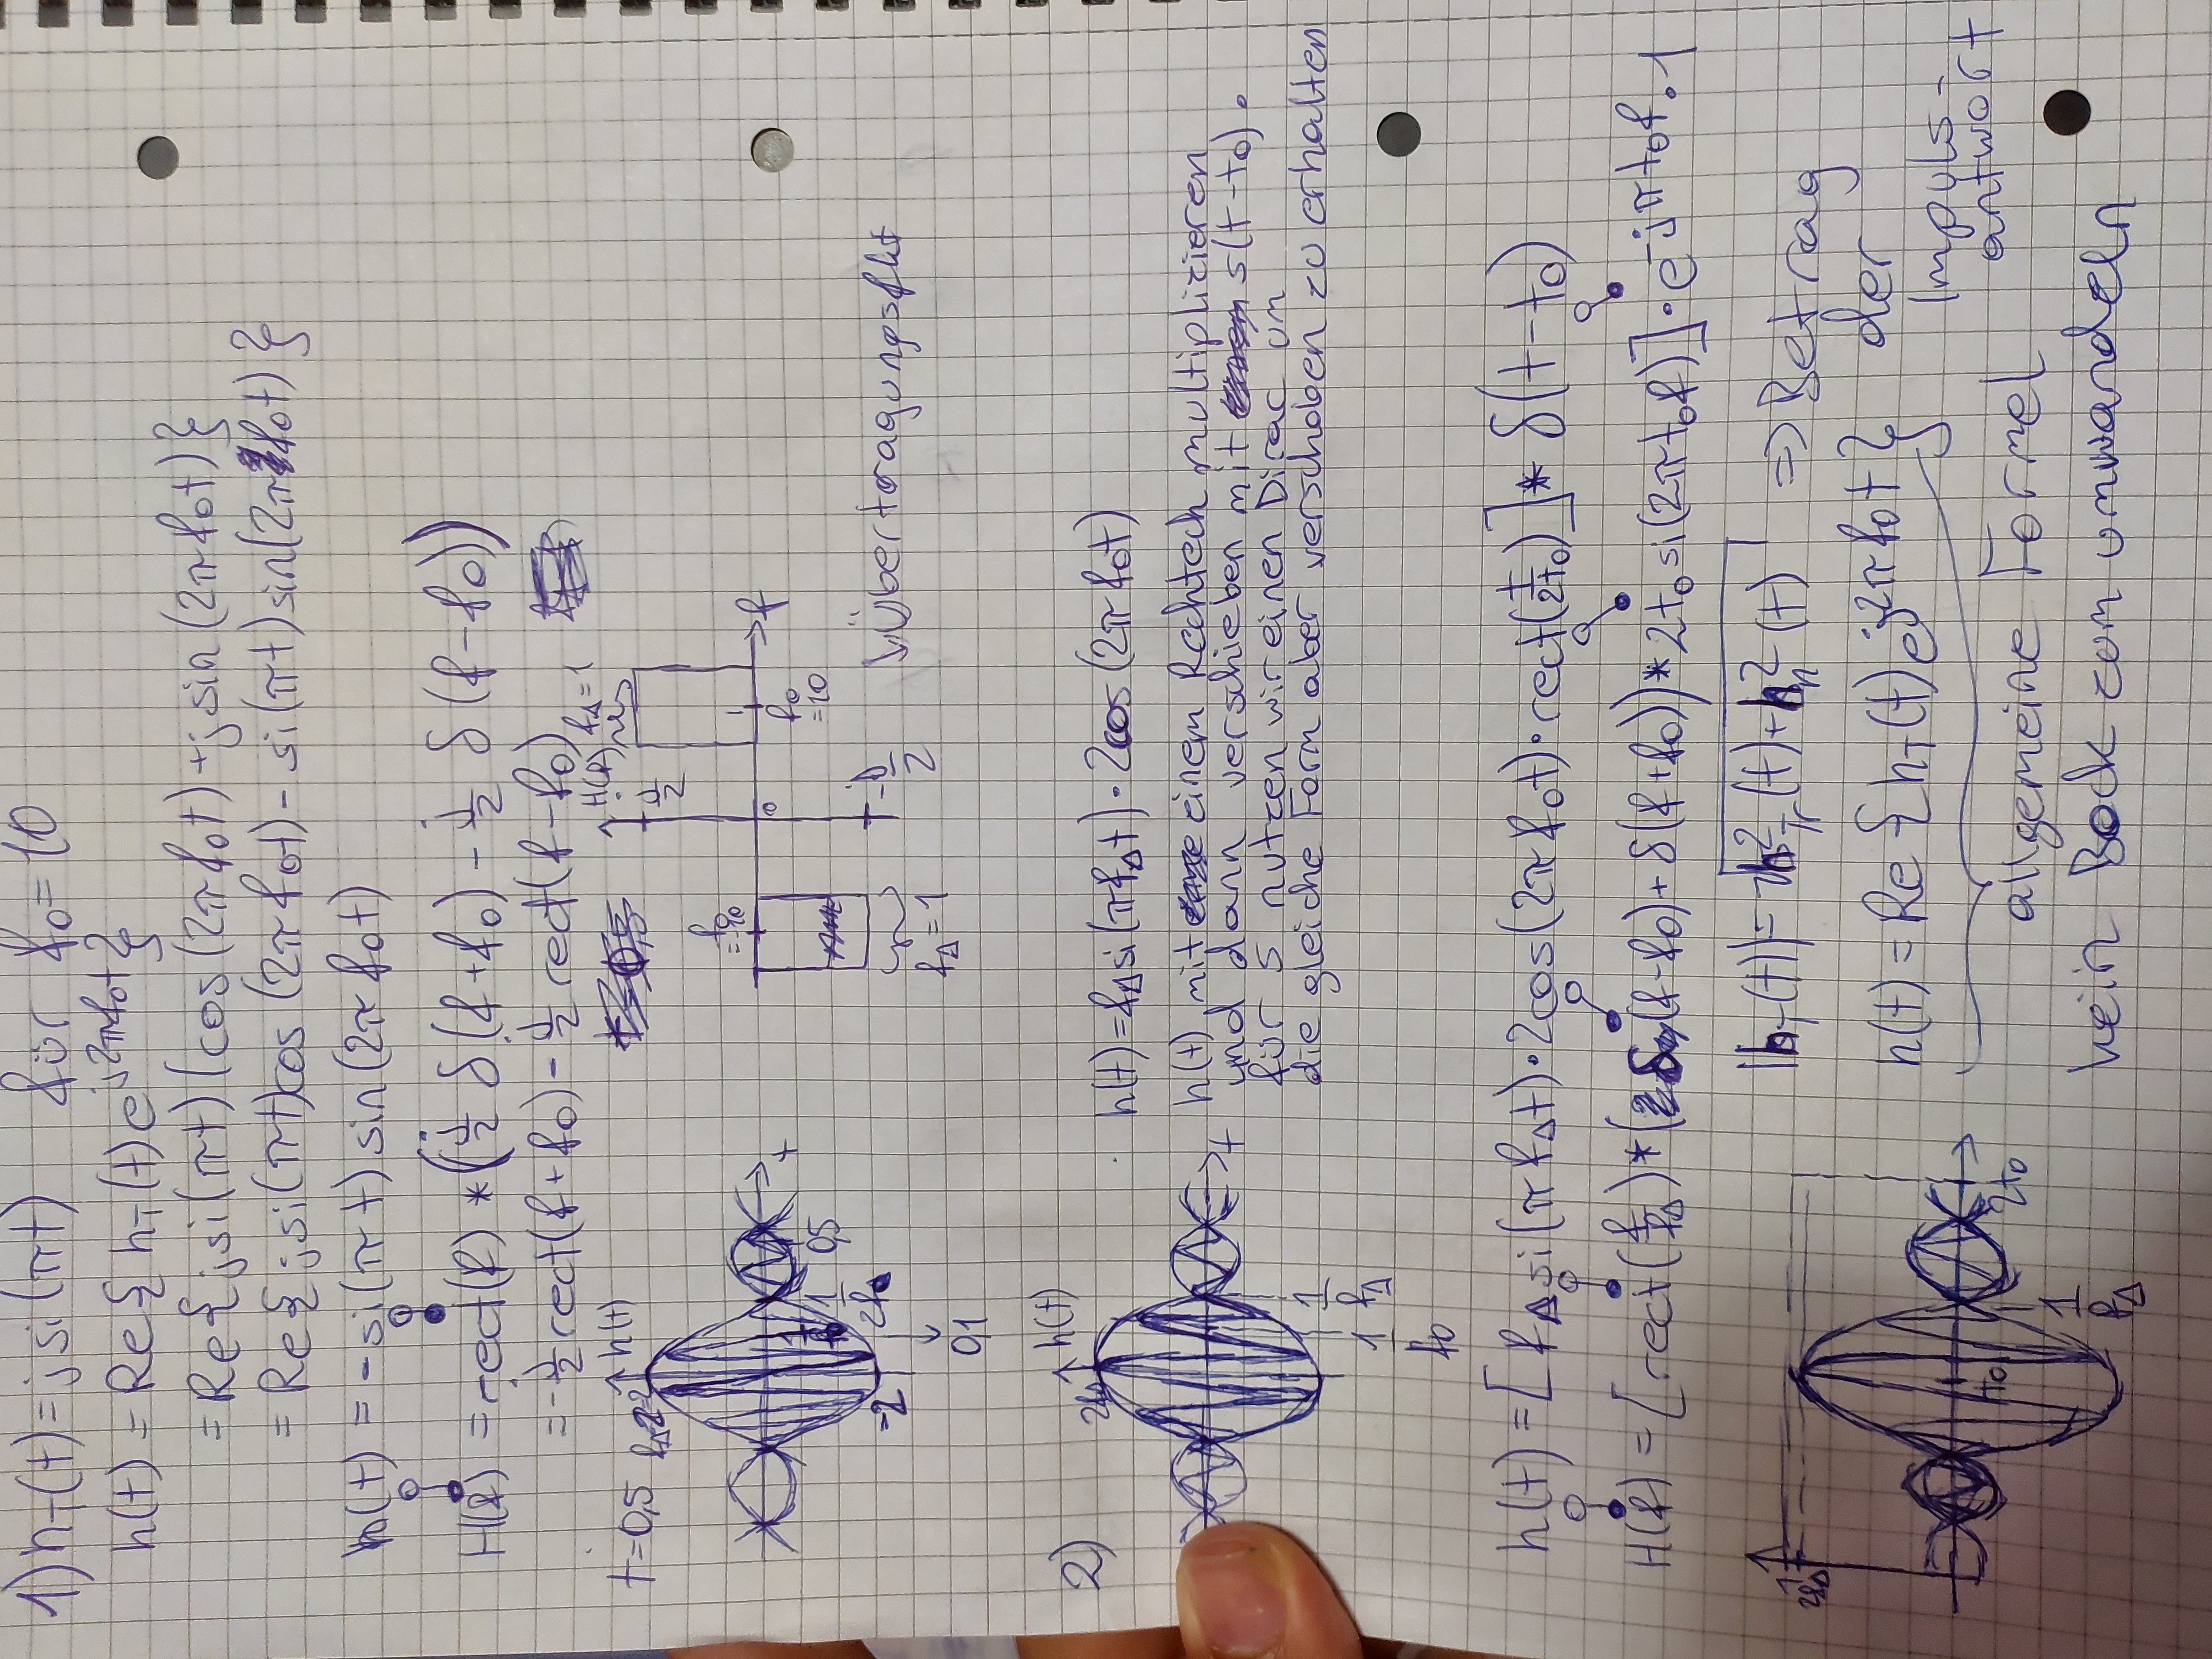 1) h_T(t) = j si(πt)   für f₀ = 10
h(t) = Re{ h_T(t) e^{j2πf₀t} }
= Re{ j si(πt) (cos(2πf₀t) + j sin(2πf₀t) }
= Re{ j si(πt) cos(2πf₀t) - si(πt) sin(2πf₀t) }
h(t) = -si(πt) sin(2πf₀t)
H(f) = rect(f) * (j/2 δ(f+f₀) - j/2 δ(f-f₀))
= -j/2 rect(f+f₀) - j/2 rect(f-f₀)
t=0,5
h(t)
-2
1/2f₀
0,5
0,1
H(f)
f_Δ=1
j/2
f₀
0
f
f₀
=10
-j/2
f_Δ=1
Übertragungsfkt
t
2)
h(t)
2f_Δ
t
1/f_Δ
1/f₀
h(t) = f_Δ si(πf_Δt) · 2cos(2πf₀t)
h(t) mit einem Rechteck multiplizieren
und dann verschieben mit s(t-t₀).
für s nutzen wir einen Dirac um
die gleiche Form aber verschoben zu erhalten
h(t) = [f_Δ si(πf_Δt) · 2cos(2πf₀t) · rect(t/2t₀)] * δ(t-t₀)
H(f) = [rect(f/f_Δ) * (δ(f-f₀) + δ(f+f₀)) * 2t₀ si(2πt₀f)] · e^{-jπt₀f} · 1
2f_Δ
t₀
2t₀
1/f_Δ
|h_T(t)| = √(h²_Tr(t) + h²_n(t)) ⇒ Betrag
der
Impuls-
antwort
h(t) = Re{ h_T(t) e^{j2πf₀t} }
allgemeine Formel
kein Bock zum umwandeln